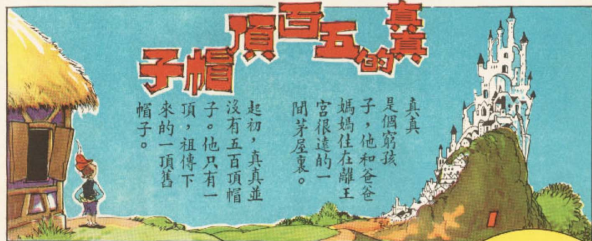 真真的五百頂帽子
真真
是個窮孩
子，他和爸爸
媽媽住在離王
宮很遠的一
間茅屋裏。
起初，真真並
沒有五百頂帽
子。他只有一
頂，祖傳下
來的一頂舊
帽子。